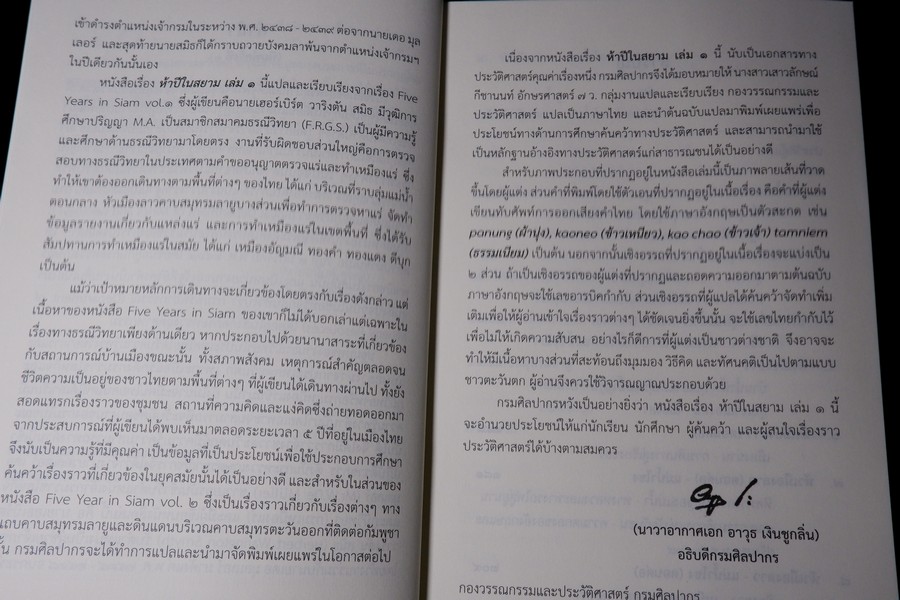 เข้าดำรงตำแหน่งเจ้ากรมในระหว่าง พ.ศ. ๒๔๓๘ - ๒๔๓๙ ต่อจากนายเดอ มุล
เลอร์ และสุดท้ายนายสมิธก็ได้กราบถวายบังคมลาพ้นจากตำแหน่งเจ้ากรมฯ
ในปีเดียวกันนั้นเอง
หนังสือเรื่อง ห้าปีในสยาม เล่ม ๑ นี้แปลและเรียบเรียงจากเรื่อง Five
Years in Siam vol.๑ ซึ่งผู้เขียนคือนายเฮอร์เบิร์ต วาริงตัน สมิธ มีวุฒิการ
ศึกษาปริญญา M.A. เป็นสมาชิกสมาคมธรณีวิทยา (F.R.G.S.) เป็นผู้มีความรู้
และศึกษาด้านธรณีวิทยามาโดยตรง งานที่รับผิดชอบส่วนใหญ่คือการตรวจ
สอบทางธรณีวิทยาในประเทศตามคำขออนุญาตตรวจแร่และทำเหมืองแร่ ซึ่ง
ทำให้เขาต้องออกเดินทางตามพื้นที่ต่างๆ ของไทย ได้แก่ บริเวณที่ราบลุ่มแม่น้ำ
ตอนกลาง หัวเมืองลาวคาบสมุทรมลายูบางส่วนเพื่อทำการตรวจหาแร่ จัดทำ
ข้อมูลรายงานเกี่ยวกับแหล่งแร่ และการทำเหมืองแร่ในเขตพื้นที่ ซึ่งได้รับ
สัมปทานการทำเหมืองแร่ในสมัย ได้แก่ เหมืองอัญมณี ทองคำ ทองแดง ดีบุก
เป็นต้น
แม้ว่าเป้าหมายหลักการเดินทางจะเกี่ยวข้องโดยตรงกับเรื่องดังกล่าว แต่
เนื้อหาของหนังสือ Five Years in Siam ของเขาก็ไม่ได้บอกเล่าแต่เฉพาะใน
เรื่องทางธรณีวิทยาเพียงด้านเดียว หากประกอบไปด้วยนานาสาระที่เกี่ยวข้อง
กับสถานการณ์บ้านเมืองขณะนั้น ทั้งสภาพสังคม เหตุการณ์สำคัญตลอดจน
ชีวิตความเป็นอยู่ของชาวไทยตามพื้นที่ต่างๆ ที่ผู้เขียนได้เดินทางผ่านไป ทั้งยัง
สอดแทรกเรื่องราวของชุมชน สถานที่ความคิดและแง่คิดซึ่งถ่ายทอดออกมา
จากประสบการณ์ที่ผู้เขียนได้พบเห็นมาตลอดระยะเวลา ๕ ปีที่อยู่ในเมืองไทย
จึงนับเป็นความรู้ที่มีคุณค่า เป็นข้อมูลที่เป็นประโยชน์เพื่อใช้ประกอบการศึกษา
ค้นคว้าเรื่องราวที่เกี่ยวข้องในยุคสมัยนั้นได้เป็นอย่างดี และสำหรับในส่วนของ
หนังสือ Five Year in Siam vol. ๒ ซึ่งเป็นเรื่องราวเกี่ยวกับเรื่องต่างๆ ทาง
แถบคาบสมุทรมลายูและดินแดนบริเวณคาบสมุทรตะวันออกที่ติดต่อกัมพูชา
นั้น กรมศิลปากรจะได้ทำการแปลและนำมาจัดพิมพ์เผยแพร่ในโอกาสต่อไป
เนื่องจากหนังสือเรื่อง ห้าปีในสยาม เล่ม ๑ นี้ นับเป็นเอกสารทาง
ประวัติศาสตร์คุณค่าเรื่องหนึ่ง กรมศิลปากรจึงได้มอบหมายให้ นางสาวเสาวลักษณ์
กีชานนท์ อักษรศาสตร์ ๗ ว. กลุ่มงานแปลและเรียบเรียง กองวรรณกรรมและ
ประวัติศาสตร์ แปลเป็นภาษาไทย และนำต้นฉบับแปลมาพิมพ์เผยแพร่เพื่อ
ประโยชน์ทางด้านการศึกษาค้นคว้าทางประวัติศาสตร์ และสามารถนำมาใช้
เป็นหลักฐานอ้างอิงทางประวัติศาสตร์แก่สาธารณชนได้เป็นอย่างดี
สำหรับภาพประกอบที่ปรากฏอยู่ในหนังสือเล่มนี้เป็นภาพลายเส้นที่วาด
ขึ้นโดยผู้แต่ง ส่วนคำที่พิมพ์โดยใช้ตัวเอนที่ปรากฏอยู่ในเนื้อเรื่อง คือคำที่ผู้แต่ง
เขียนทับศัพท์การออกเสียงคำไทย โดยใช้ภาษาอังกฤษเป็นตัวสะกด เช่น
panung (ผ้านุ่ง), kaoneo (ข้าวเหนียว), kao chao (ข้าวเจ้า) tamniem
(ธรรมเนียม) เป็นต้น นอกจากนั้นเชิงอรรถที่ปรากฏอยู่ในเนื้อเรื่องจะแบ่งเป็น
๒ ส่วน ถ้าเป็นเชิงอรรถของผู้แต่งที่ปรากฏและถอดความออกมาตามต้นฉบับ
ภาษาอังกฤษจะใช้เลขอารบิคกำกับ ส่วนเชิงอรรถที่ผู้แปลได้ค้นคว้าจัดทำเพิ่ม
เติมเพื่อให้ผู้อ่านเข้าใจเรื่องราวต่างๆ ได้ชัดเจนยิ่งขึ้นนั้น จะใช้เลขไทยกำกับไว้
เพื่อไม่ให้เกิดความสับสน อย่างไรก็ดีการที่ผู้แต่งเป็นชาวต่างชาติ จึงอาจจะ
ทำให้มีเนื้อหาบางส่วนที่สะท้อนถึงมุมมอง วิธีคิด และทัศนคติเป็นไปตามแบบ
ชาวตะวันตก ผู้อ่านจึงควรใช้วิจารณญาณประกอบด้วย
กรมศิลปากรหวังเป็นอย่างยิ่งว่า หนังสือเรื่อง ห้าปีในสยาม เล่ม ๑ นี้
จะอำนวยประโยชน์ให้แก่นักเรียน นักศึกษา ผู้ค้นคว้า และผู้สนใจเรื่องราว
ประวัติศาสตร์ได้บ้างตามสมควร
(นาวาอากาศเอก อาวุธ เงินชูกลิ่น)
อธิบดีกรมศิลปากร
กองวรรณกรรมและประวัติศาสตร์ กรมศิลปากร